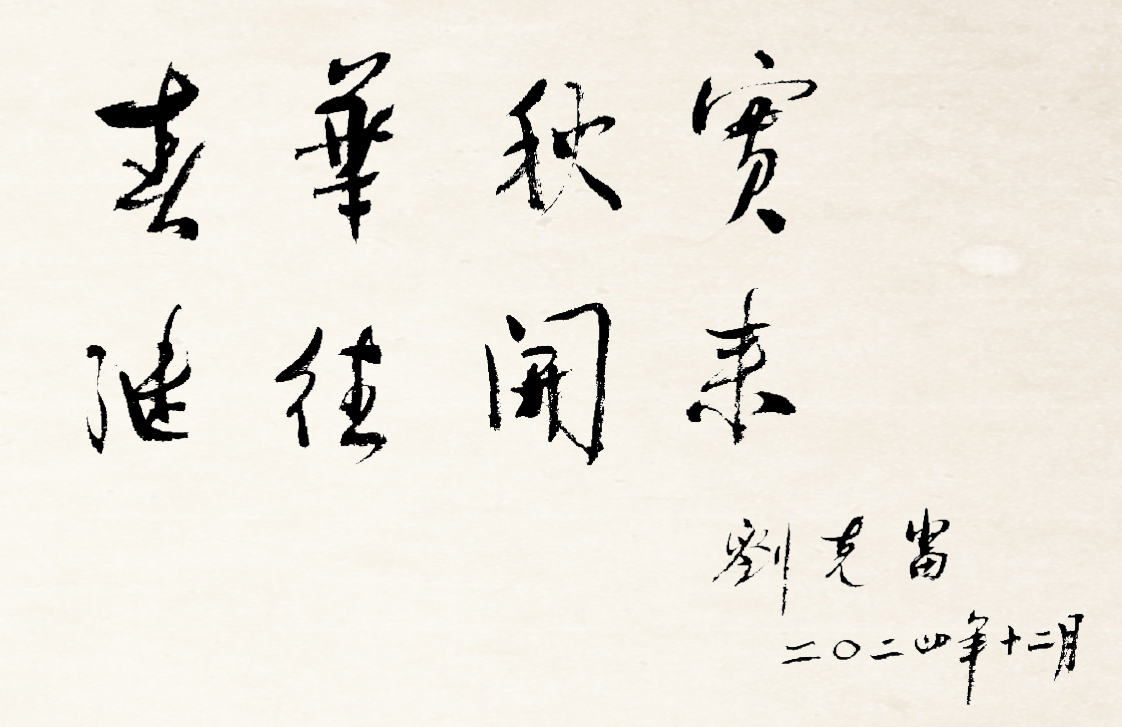 春華秋實
繼往開來
劉克崮
二〇二四年十二月